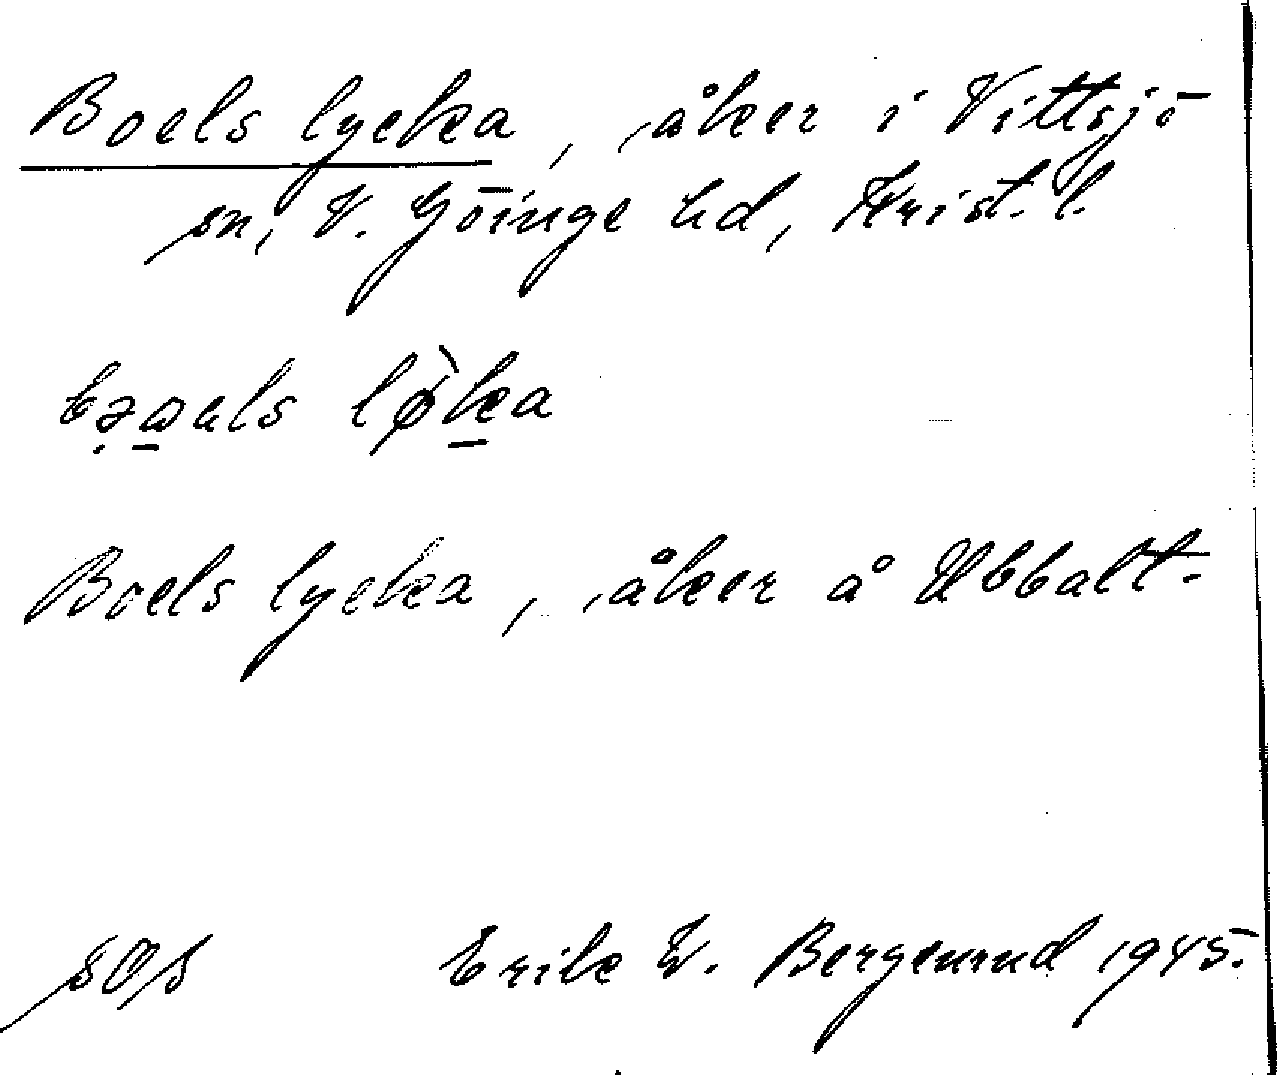 Boels lycka, åker i Vittsjö
sn, V. Göinge hd, Krist. l.
lø̀ka
Boels lycka, åker å Ubbalt.
SOS Erik W. Bergenrud 1945.